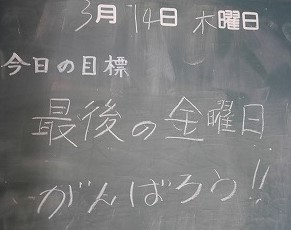 3月14日 木曜日
今日の目標
最後の金曜日
がんばろう!!